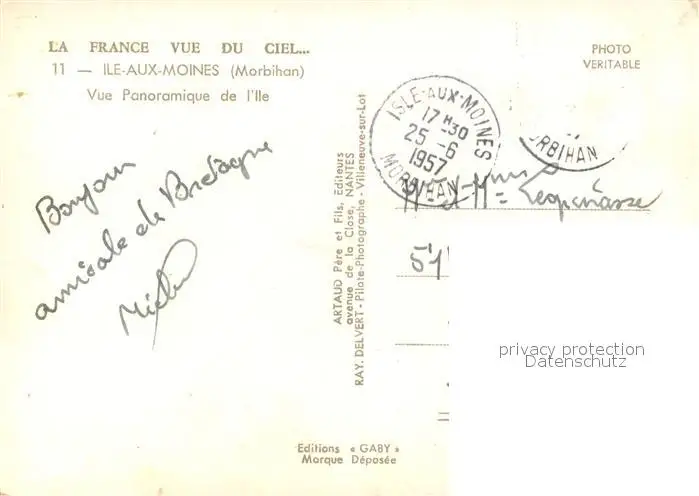 LA FRANCE VUE DU CIEL...
11 — ILE-AUX-MOINES (Morbihan)
Vue Panoramique de l'Ile
PHOTO
VERITABLE
Bonjour
amicale de Bretagne
ARTAUD Père et Fils, Editeurs
avenue de la Close, NANTES
RAY. DELVERT - Pilote-Photographe - Villeneuve-sur-Lot
ISLE-AUX-MOINES
17 H 30
25 - 6
1957
MORBIHAN
ORBIHAN
51
privacy protection
Datenschutz
Editions « GABY »
Marque Déposée